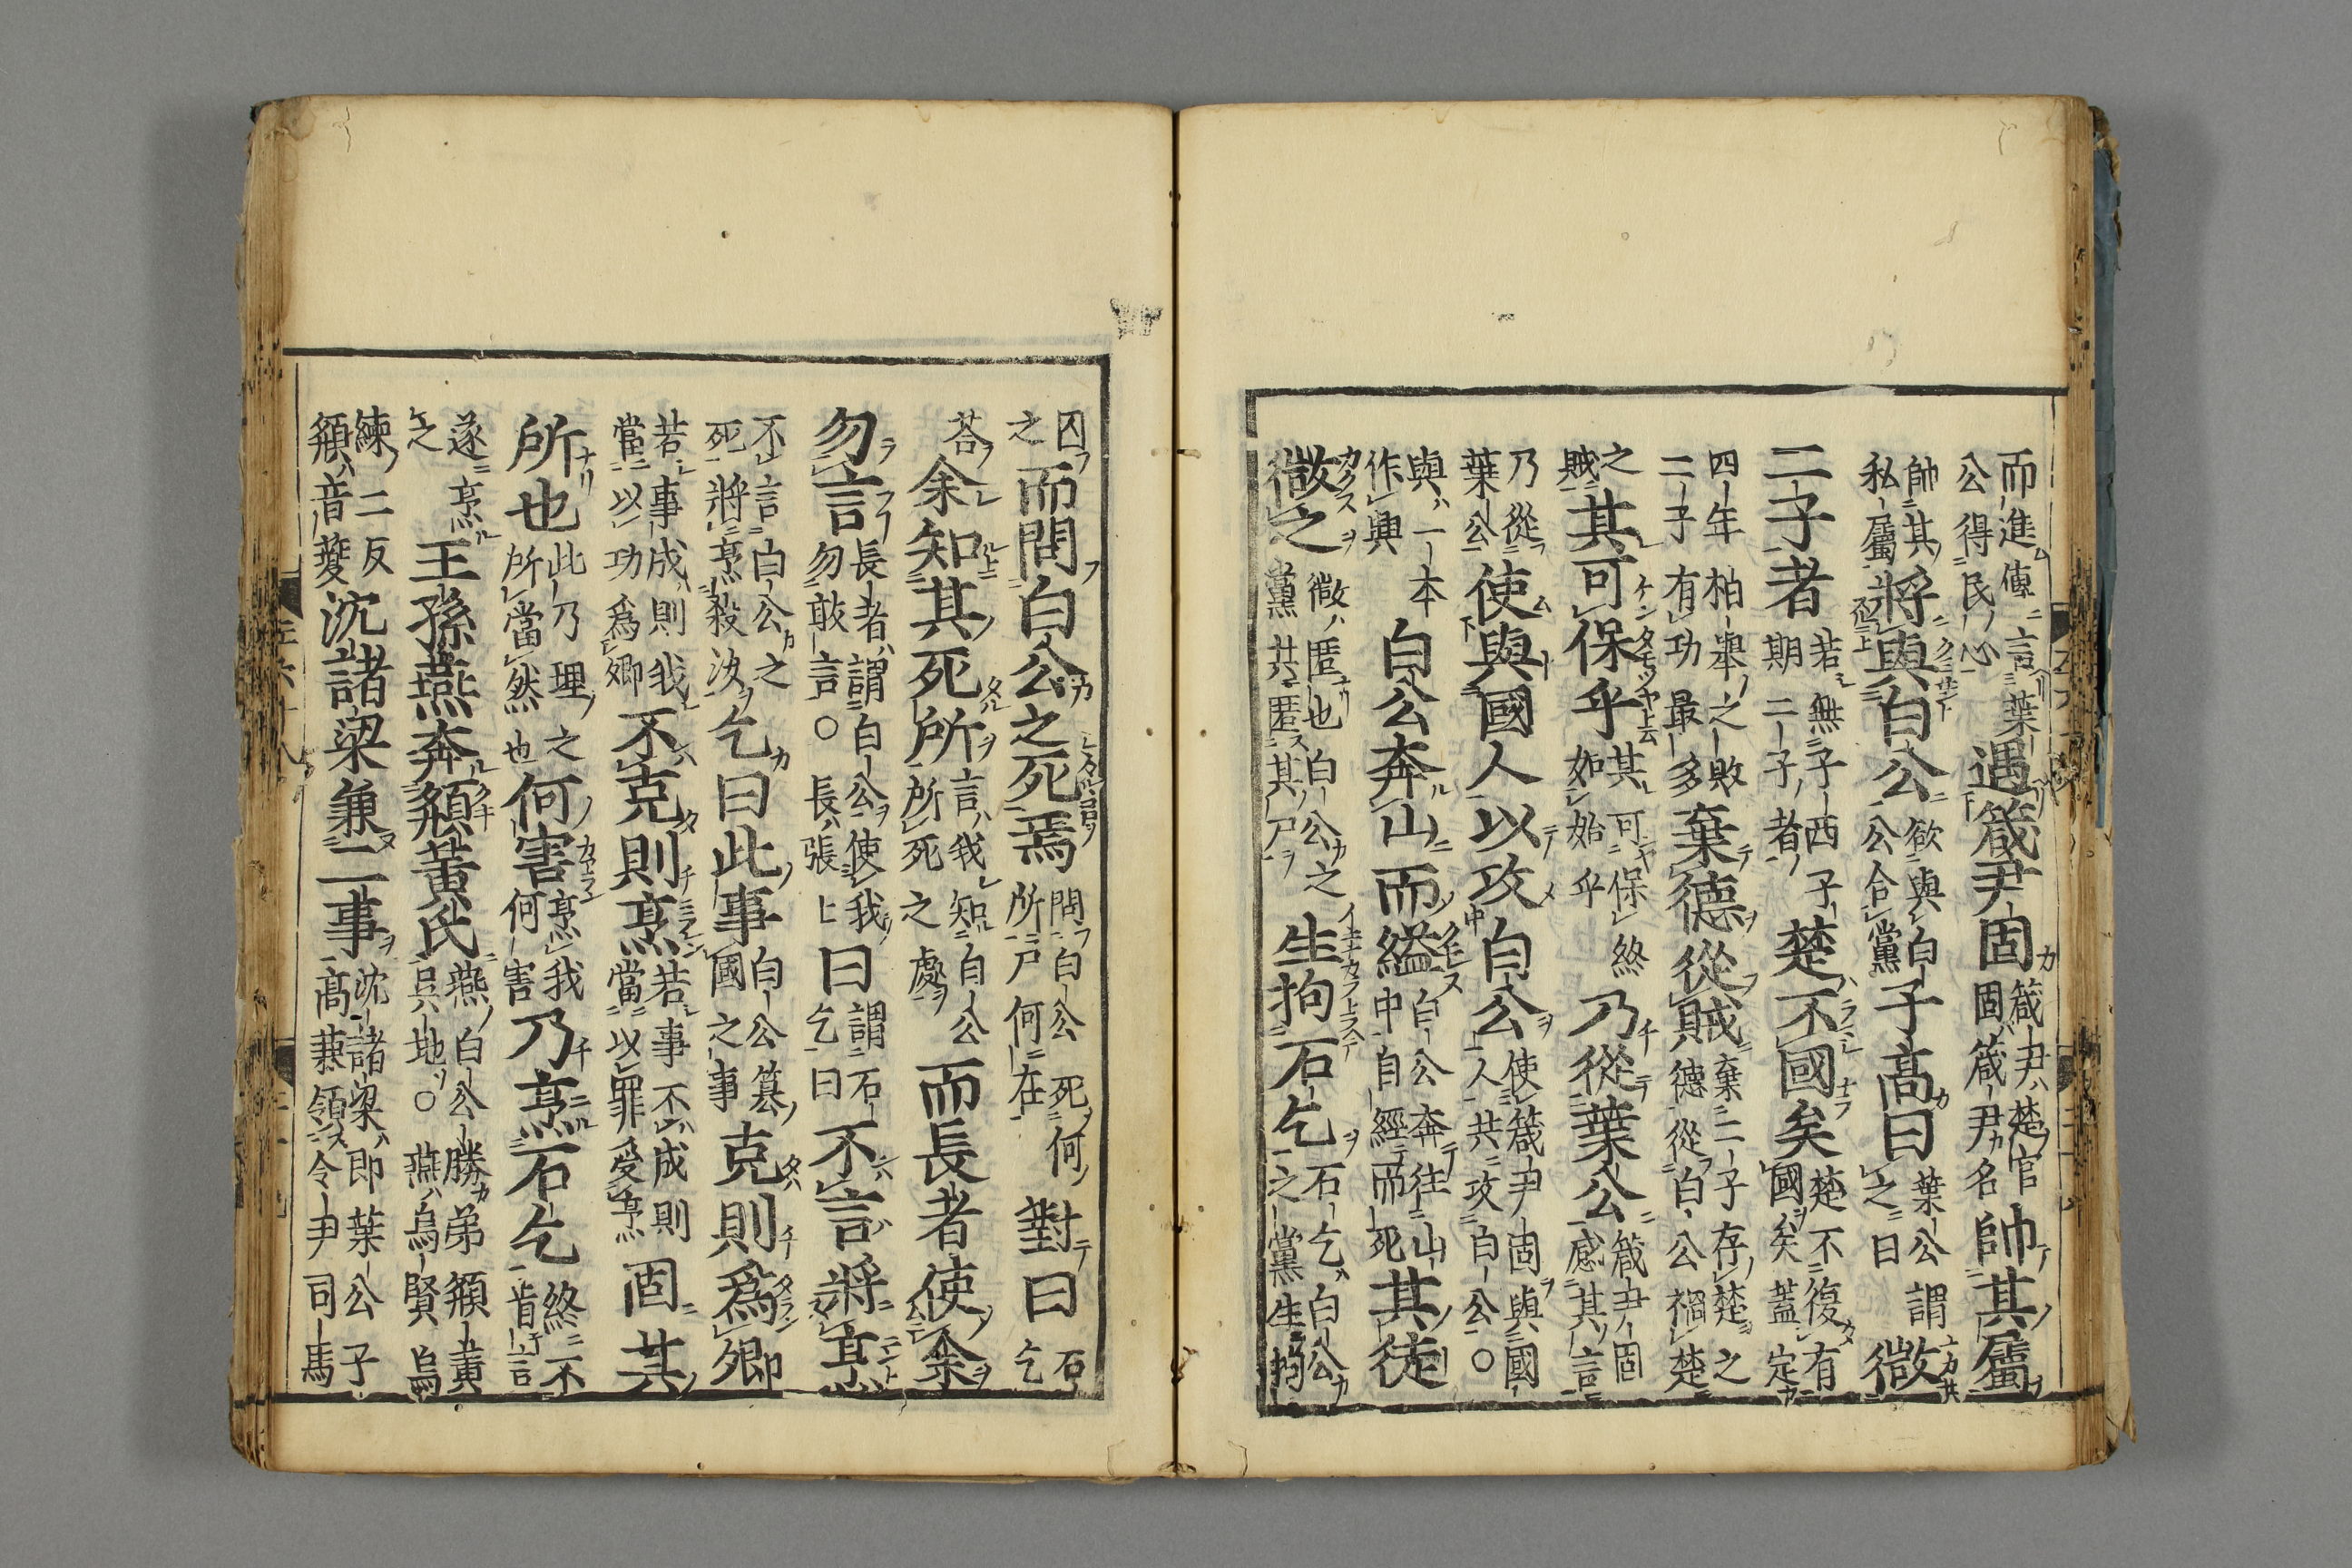 而進傳言葉公得民心遇箴尹固箴尹楚官固箴尹名帥其屬
帥其私屬將與白公欲與白公合黨子高曰葉公謂之曰微
二子者若無子西子期二子者楚不國矣楚不復有國矣蓋定
四年柏舉之敗二子有功最多棄德從賊棄二子存楚之德從白公禍楚
之賊其可保乎其可保終如始乎乃從葉公箴尹固感其言
乃從葉公使與國人以攻白公使箴尹固與國人共攻白公○
與一本作與白公奔山而縊白公奔往山中自經而死其徒
微之微匿也白公之黨共匿其尸生拘石乞石乞白公之黨生拘
囚之而問白公之死焉問白公死何所尸何在對曰石乞
荅余知其死所言我知白公所死之處而長者使余
勿言長者謂白公使我勿敢言○長張上曰謂石乞曰不言將烹
不言白公之死將烹殺汝乞曰此事白公簒國之事克則爲卿
若事成則我當以功爲卿不克則烹若事不成則當以罪受烹固其
所也此乃理之所當然也何害烹我何害乃烹石乞終不肯言
遂烹之王孫燕奔頯黃氏燕白公勝弟頯黃吳地○燕烏賢烏
練二反頯音夔沈諸梁兼二事沈諸梁即葉公子高兼領令尹司馬